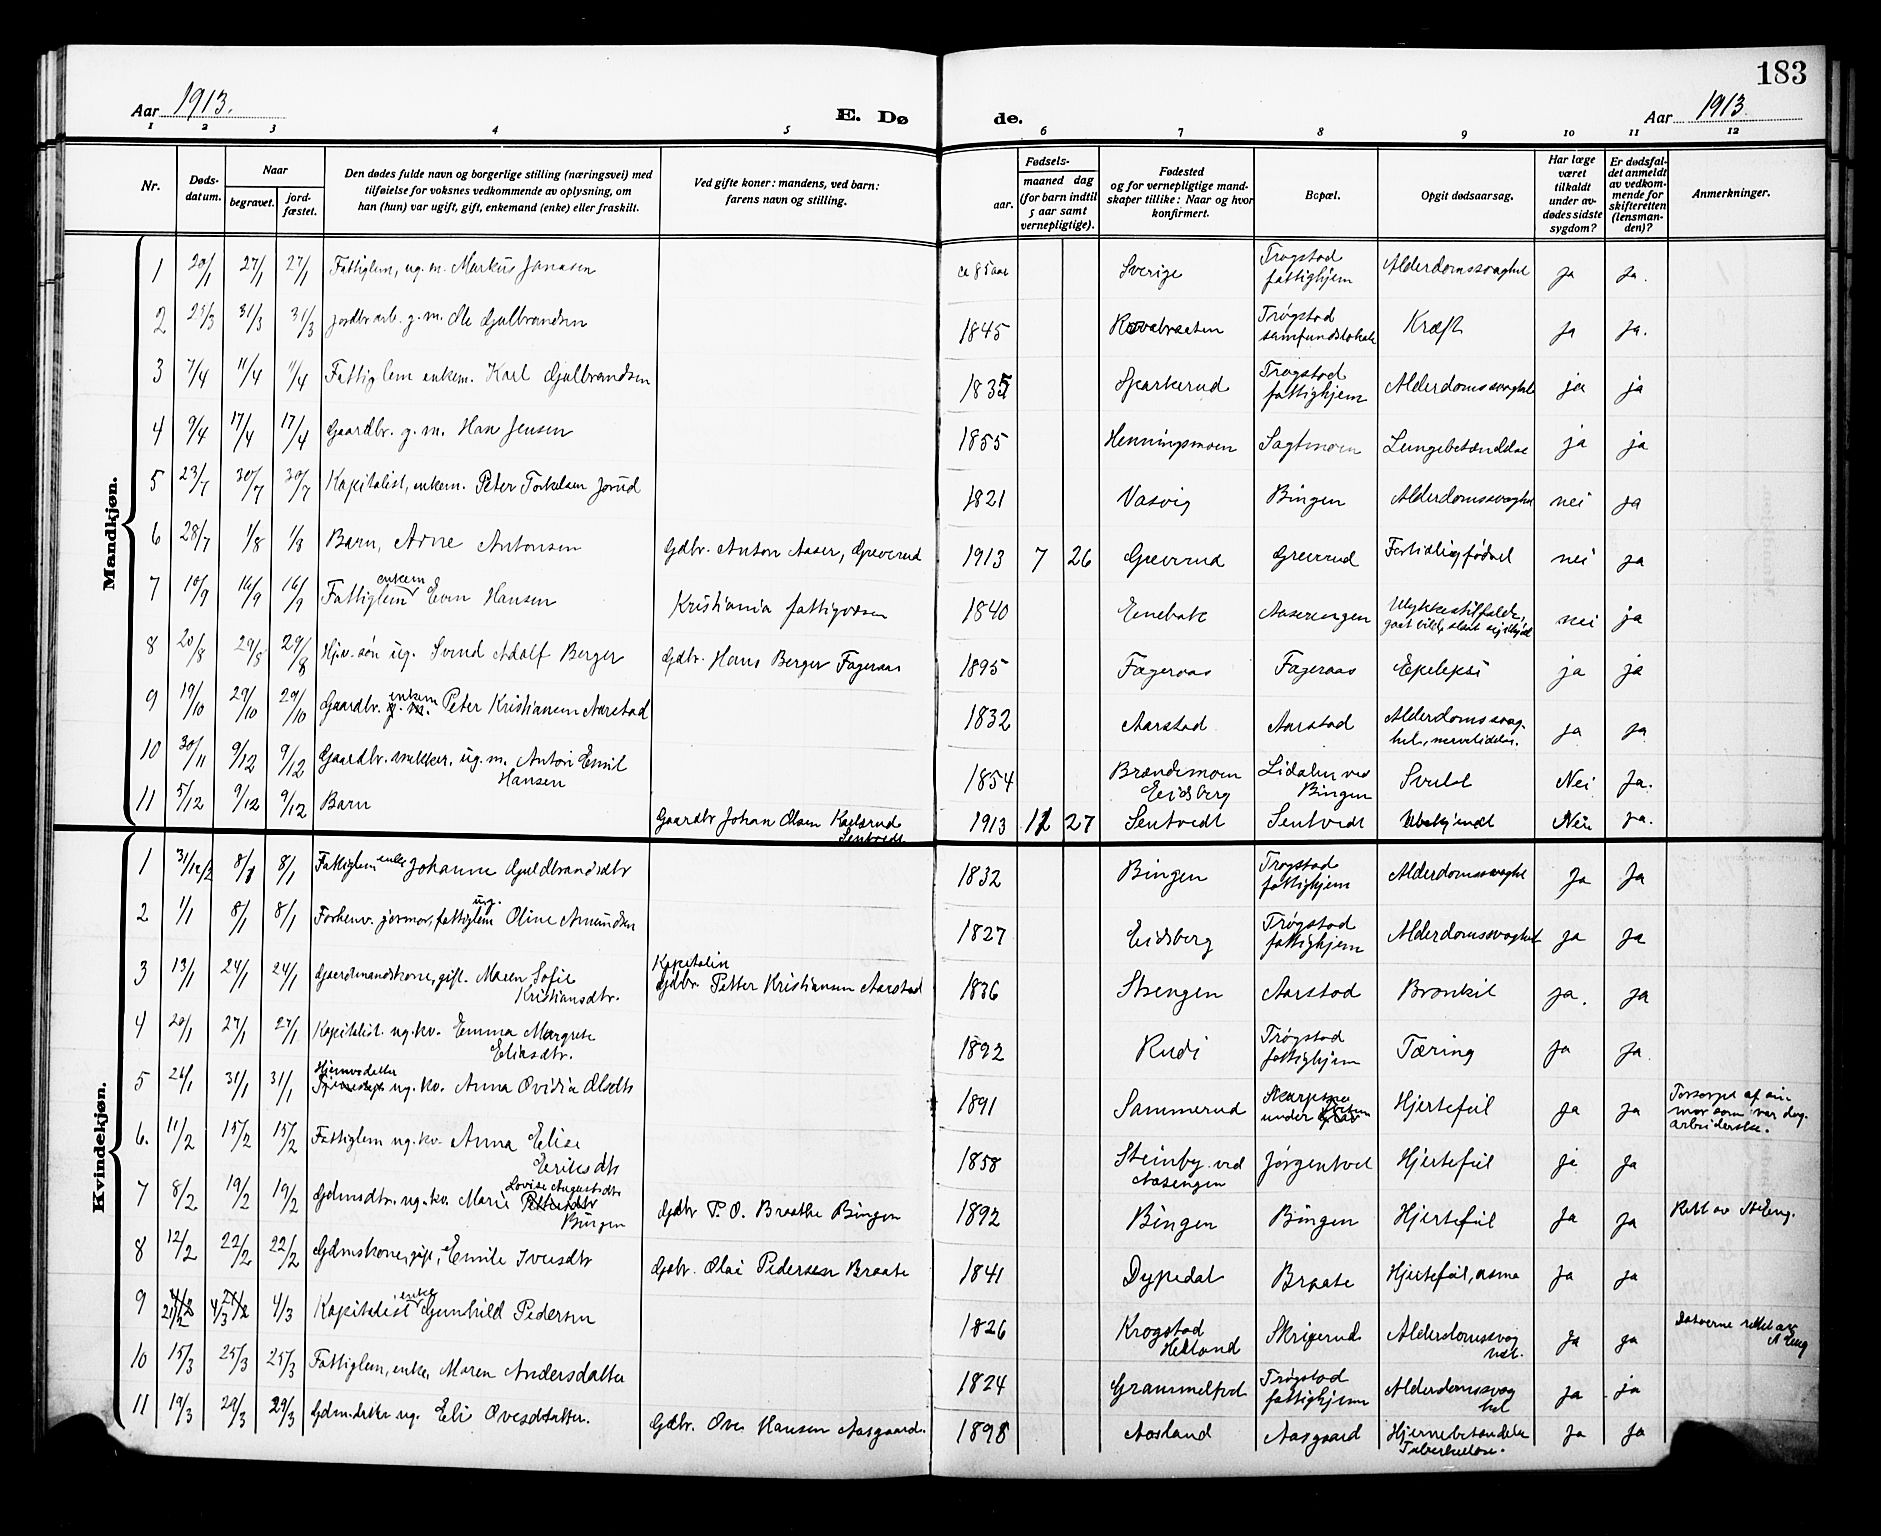 183
Aar 1913.
E. Dø
de.
Aar 1913.
1 2 3 4 5 6 7 8 9 10 11 12
Nr.
Døds-
datum.
Naar
begravet.
jord-
fæstet.
Den dødes fulde navn og borgerlige stilling (næringsvei) med
tilføielse for voksnes vedkommende av oplysning, om
han (hun) var ugift, gift, enkemand (enke) eller fraskilt.
Ved gifte koner: mandens, ved barn:
farens navn og stilling.
Fødsels-
aar.
maaned dag
(for barn indtil
5 aar samt
vernepligtige).
Fødested
og for vernepligtige mand-
skaper tillike: Naar og hvor
konfirmert.
Bopæl.
Opgit dødsaarsag.
Har læge
været
tilkaldt
under av-
dødes sidste
sygdom?
Er dødsfal-
det anmeldt
av vedkom-
mende for
skifteretten
(lensman-
den)?
Anmerkninger.
Mandkjøn.
1 20/1 27/1 27/1 Fattiglem, ug. m. Markus Jonasen ca 85 aar Sverige Trøgstad fattighjem Alderdomssvaghet Ja Ja.
2 25/3 31/3 31/3 Jordbr.arb. g. m. Ole Gulbrandsen 1845 Trøgstad samfundslokale Kræft Ja Ja.
3 7/4 11/4 11/4 Fattiglem enkem. Karl Gulbrandsen 1835 Skarkerud Trøgstad fattighjem Alderdomssvaghet ja ja
4 9/4 17/4 17/4 Gaardbr. g. m. Hans Jensen 1855 Henningsmoen Sagtmoen Lungebetændelse ja ja
5 23/7 30/7 30/7 Kapitalist, enkem. Peter Torkelsen Jorud 1821 Vasvig Bingen Alderdomssvaghet nei ja
6 28/7 1/8 1/8 Barn, Arne Antonsen Gdbr. Anton Aaser, Greverud 1913 7 26 Greverud Greverud Fortidlig fødsel nei ja
7 10/9 16/9 16/9 Fattiglem enkem Even Hansen Kristiania fattigvæsen 1840 Enebak Aaserengen Ulykkestilfælde, nei ja
8 20/8 29/8 29/8 Hjv. søn ug. Svend Adolf Berger Gdbr. Hans Berger Fageraas 1895 Fageraas Fageraas Epilepsi ja ja
9 19/10 29/10 29/10 Gaardbr. enkem g. m. Peter Kristiansen Aarstad 1832 Aarstad Aarstad Alderdomssvag-
het, nervelidelse. ja ja
10 30/11 9/12 9/12 Gaardbr. ug. m. Anton Emil
Hansen 1854 Brandsmoen
Eidsberg Lidalen ved
Bingen Svulst Nei Ja.
11 5/12 9/12 9/12 Barn Gaardbr Johan Olsen Karlsrud
Sentvedt 1913 11 27 Sentvedt Sentvedt Ubekjendt Nei ja.
Kvindekjøn.
1 31/12/12 8/1 8/1 Fattiglem enke Johanne Guldbrandsdtr 1832 Bingen Trøgstad
fattighjem Alderdomssvaghet Ja Ja
2 1/1 8/1 8/1 Forhenv. jormor, fattiglem ug. Oline Amundsen 1827 Eidsberg Trøgstad
fattighjem Alderdomssvaghet ja Ja
3 13/1 24/1 24/1 Gaardmandskone, gift. Maren Sofie
Kristiansdtr. Kapitalist
Gdbr. Petter Kristiansen Aarstad 1836 Strengen Aarstad Bronkit ja. ja
4 20/1 27/1 27/1 Kapitalist. ug. kv. Emma Margrete
Eliasdtr. 1892 Rudi Trøgstad
fattighjem Tæring ja ja.
5 26/1 31/1 31/1 Hjemmedatter ug. kv. Anna Ovidia Olsdtr 1891 Sammerud Skarpsno
under Hjertefeil Ja ja Forsørget af sin
mor som var dag-
arbeiderske.
6. 11/2 15/2 15/2 Fattiglem ug. kv. Anna Elise
Eriksdtr 1858 Steinby ved
Aasengen Jørgentvet Hjertefeil ja ja
7 8/2 19/2 19/2 Gdmsdtr. ug. kv. Marie Lovise Augustsdtr Pettersdtr
Bingen Gdbr P. O. Braathe Bingen 1892 Bingen Bingen Hjertefeil Ja ja Rett av
8 12/2 22/2 22/2 Gdmskone, gift, Emilie Iversdtr Gdbr. Olai Pedersen Braate 1841 Dypedal Braate Hjertefeil, asma Ja ja
9 4/3 4/3 Kapitalist enke Gunhild Pedersen 1826 Krogstad
Hetland Skrigerud Alderdomssvag-
het. Ja ja Datoerne rettet av
10 15/3 25/3 25/3 Fattiglem, enke, Maren Andersdatter 1824 Trøgstad
fattighjem Alderdomssvag-
het Ja ja
11 19/3 29/3 29/3 Gdm.datter ug. Eli Ovesdatter. Gdbr. Ove Hansen Aasgaard. 1898 Aasland Aasgaard Hjernebetændelse
Tuberkulose. Ja Ja